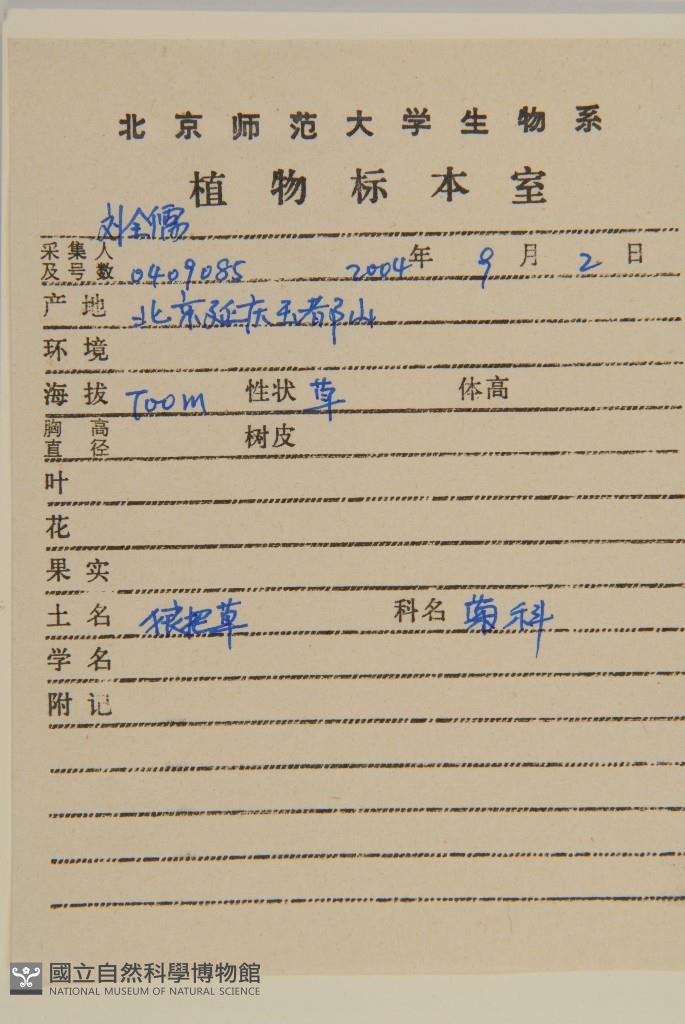 北京师范大学生物系
植物标本室
刘全儒
采集人及号数 0409085 2004年 9月 2日
产地 北京延庆玉都山
环境
海拔 700m 性状 草 体高
胸高直径 树皮
叶
花
果实
土名 狼把草 科名 菊科
学名
附记
國立自然科學博物館
NATIONAL MUSEUM OF NATURAL SCIENCE